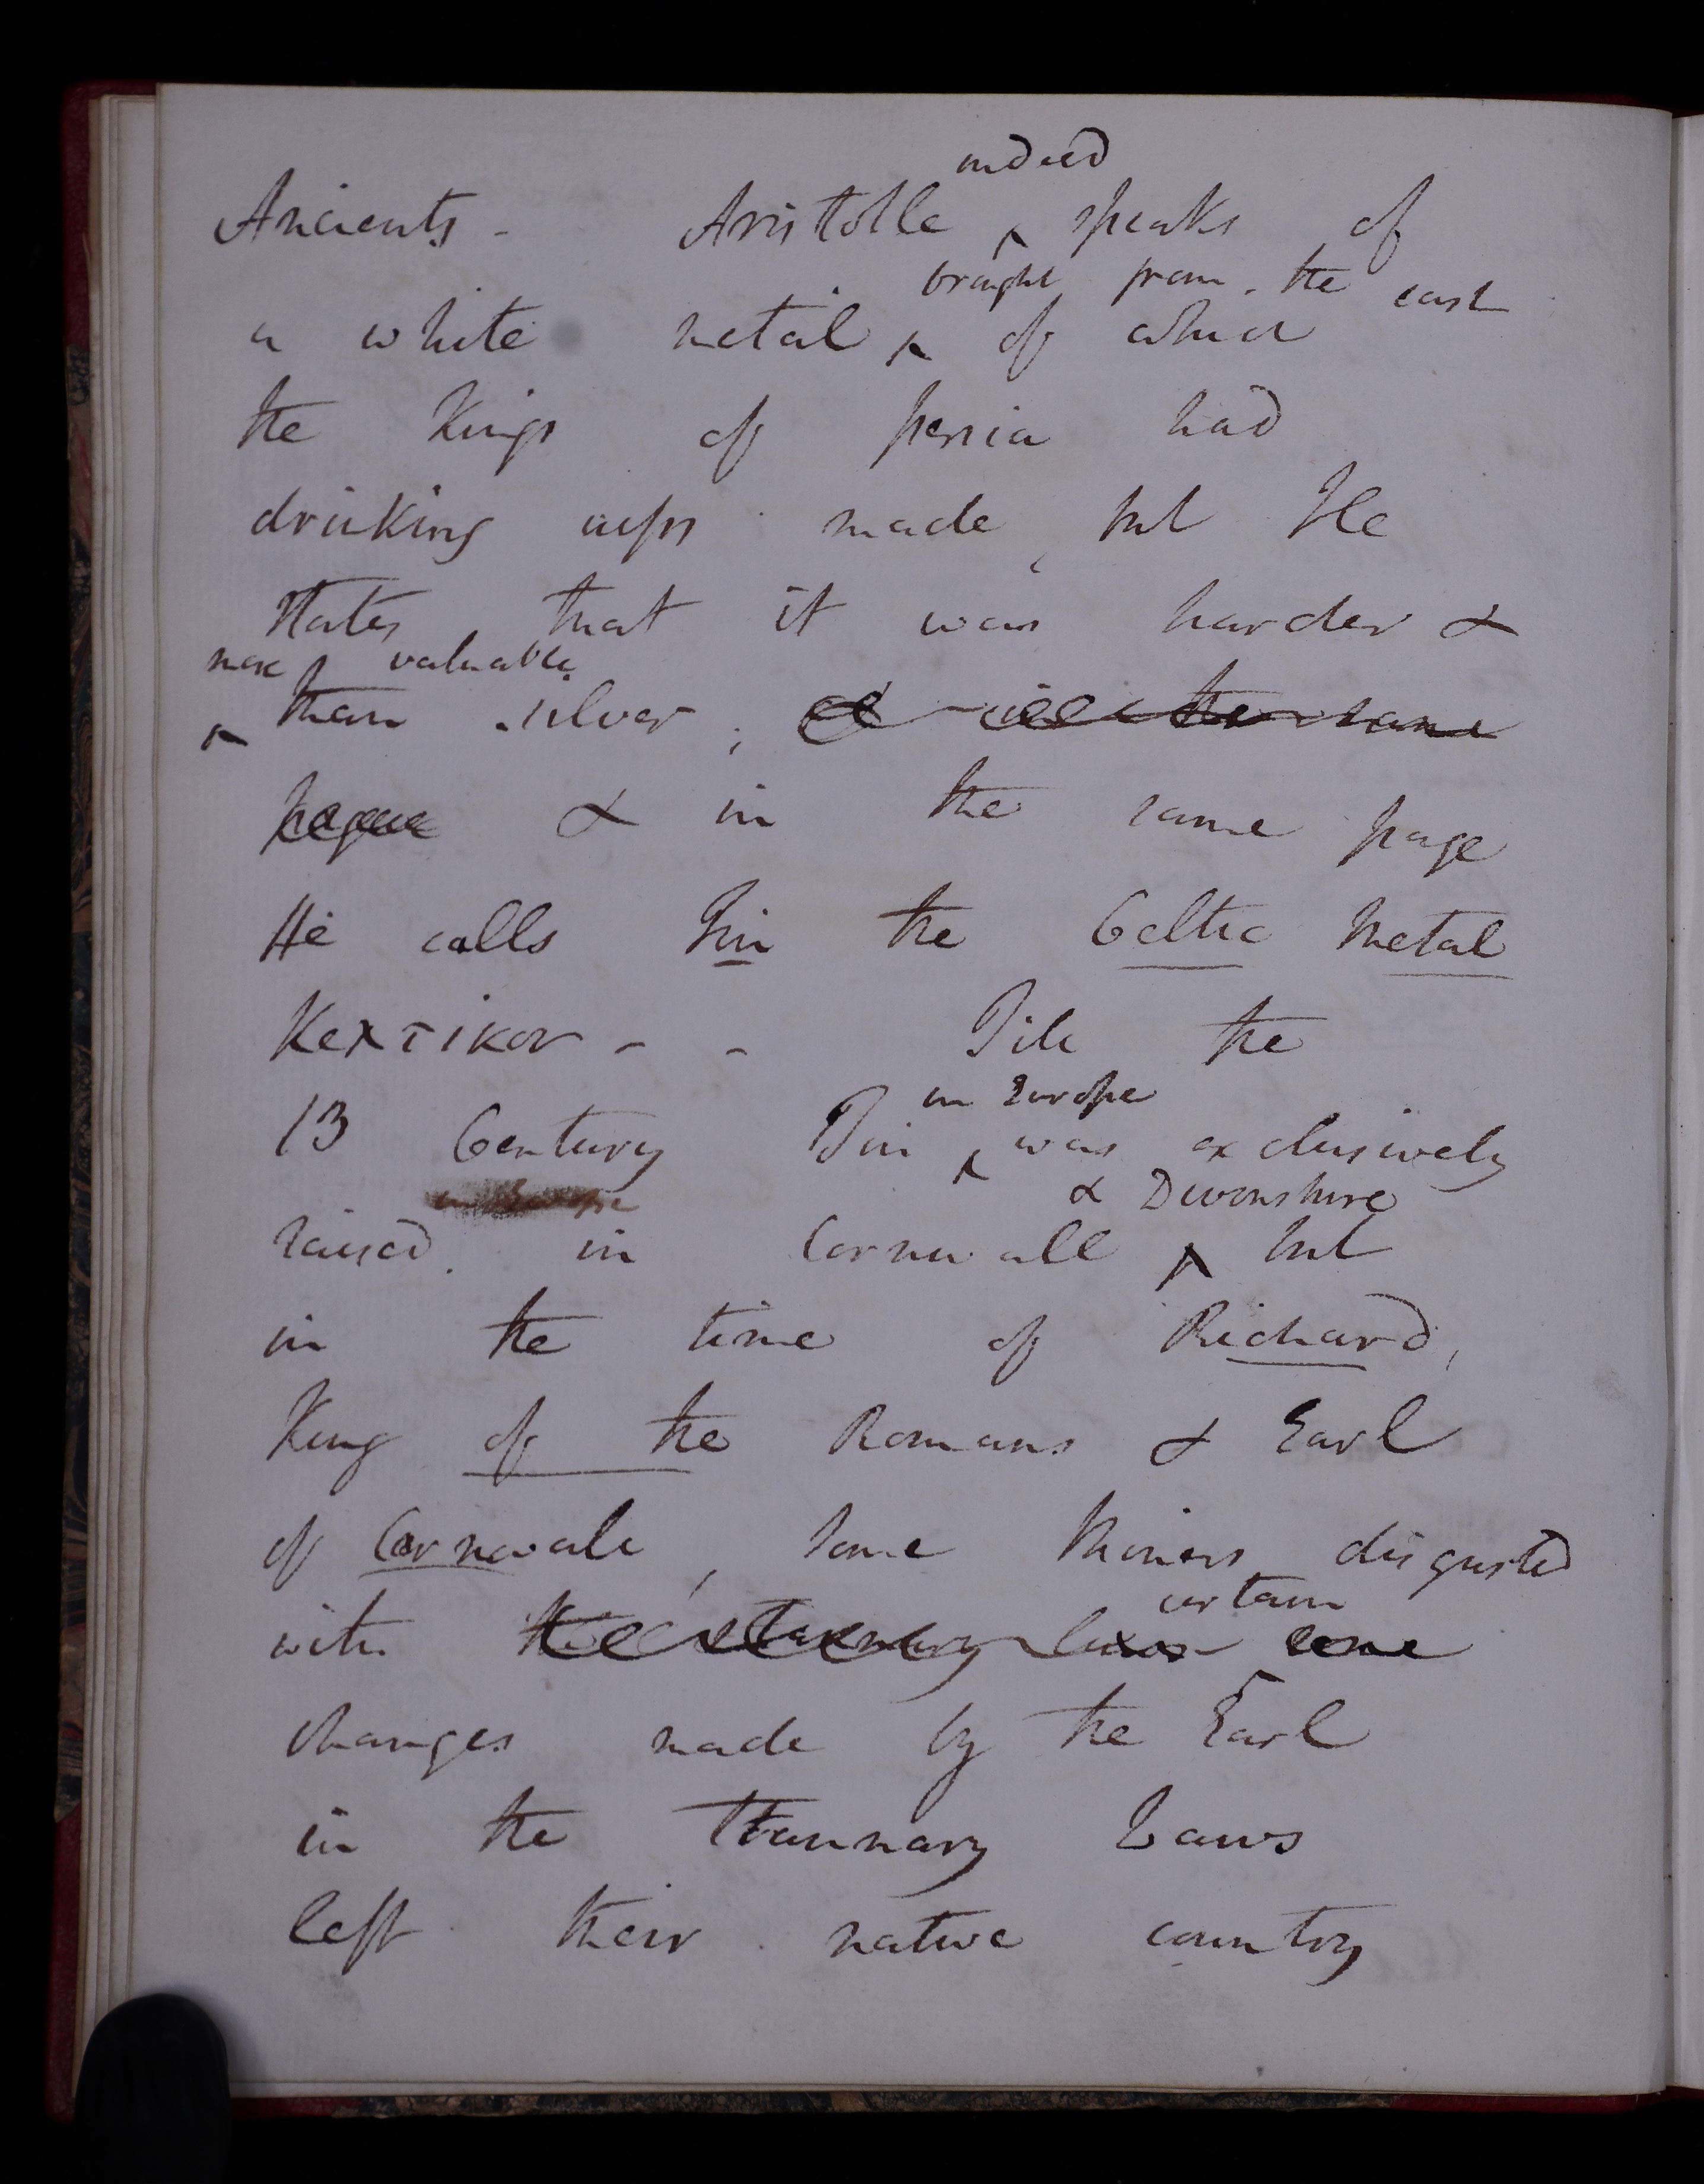 indeed
Ancients - Aristotle ^ speaks of
brought from the east
a white metal ^ of which
the Kings of persia had
drinking cups made, but He
states that it was harder &
more valuable
^ than silver; & in the same
page & in the same page
He calls Tin the Celtic Metal
Κελτικον - - Till the
in Europe
13 Century Tin ^ was exclusively
in Europe
& Devonshire
raised in Cornwall ^ but
in the time of Richard,
King of the Romans & Earl
of Cornwale, some Miners disgusted
certain
with the stannary laws some
changes made by the Earl
in the Stannary Laws
left their native country